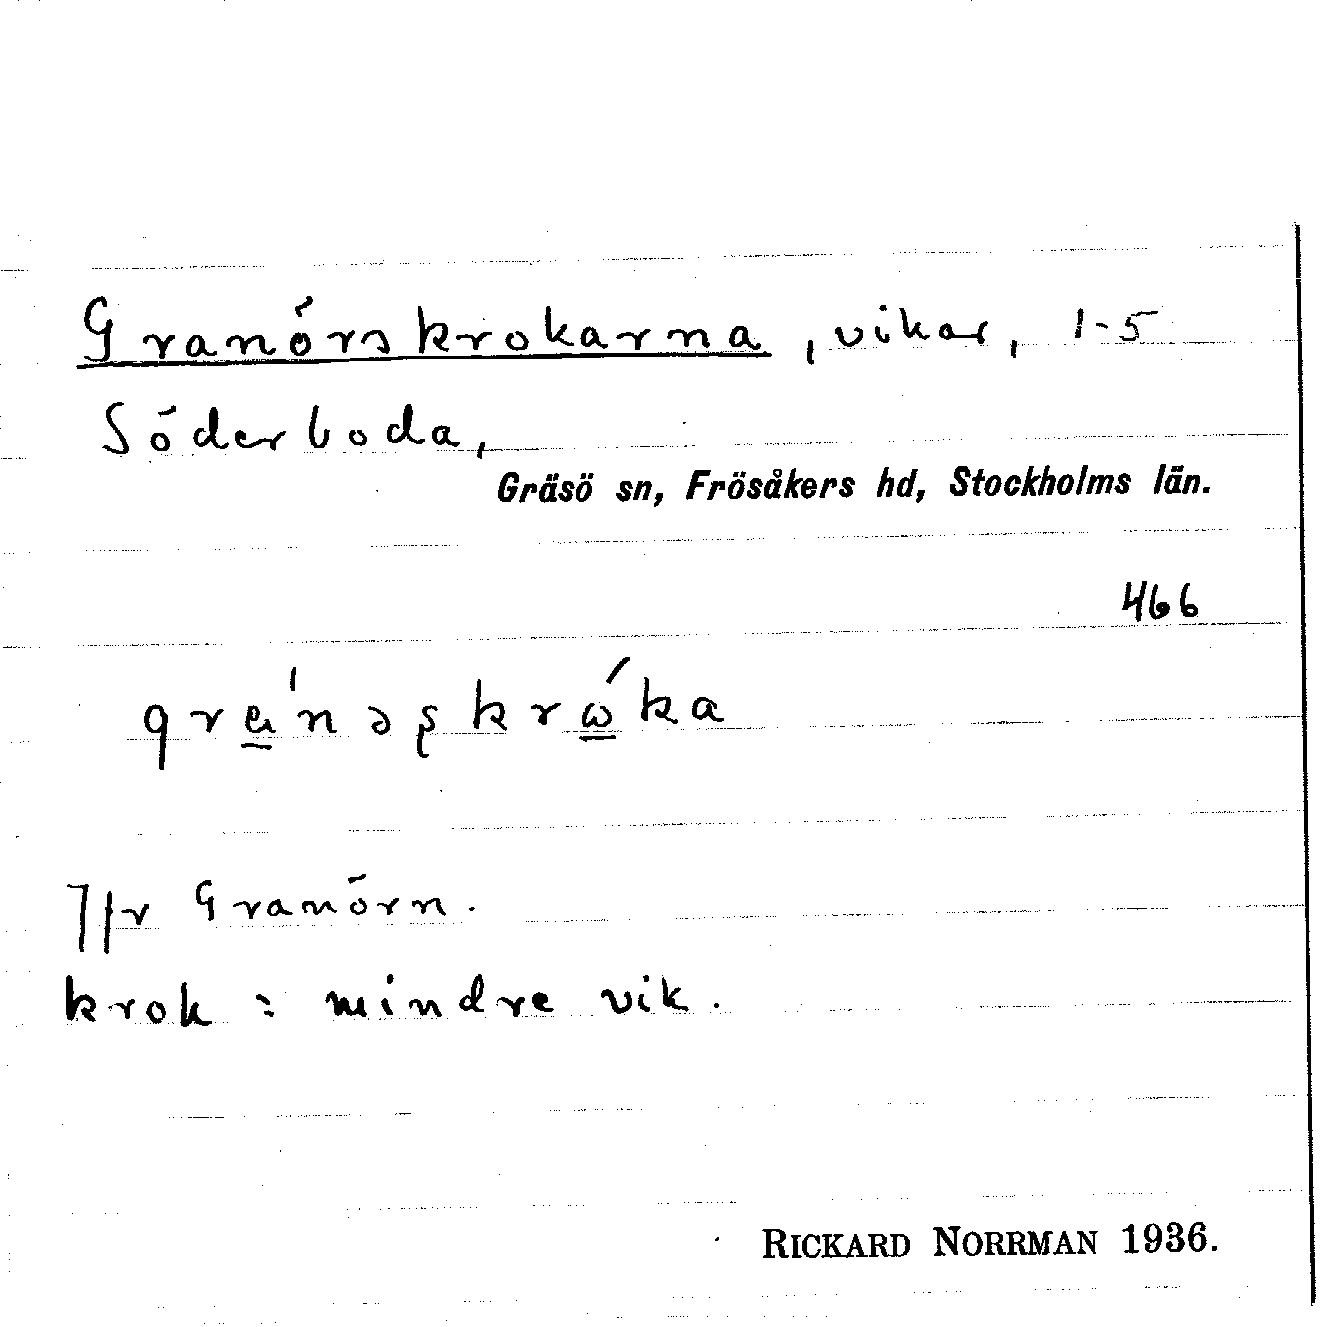 Granörskrokarna, vikar, 1-5
Söderboda,
Gräsö sn, Frösåkers hd, Stockholms län.
466
Jfr Granörn.
krok = mindre vik.
RICKARD NORRMAN 1936.